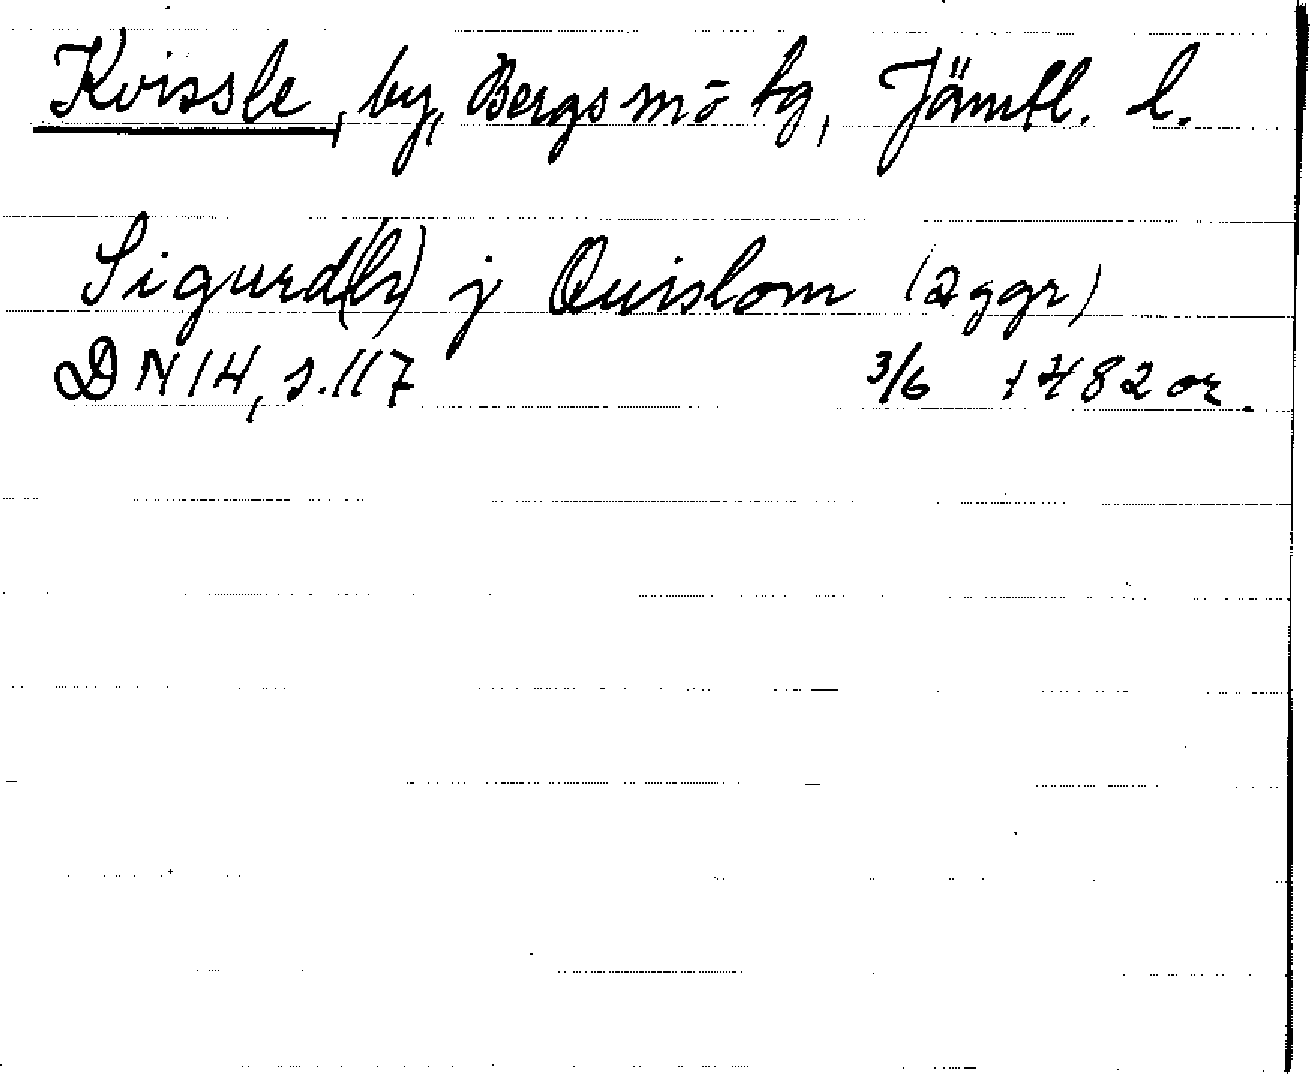 Kvissle, by, Bergs mō tg, Jämtl. l.
Sigurd(h) j Quislom (2 ggr)
DN 14, s. 117 3/6 1482 or.